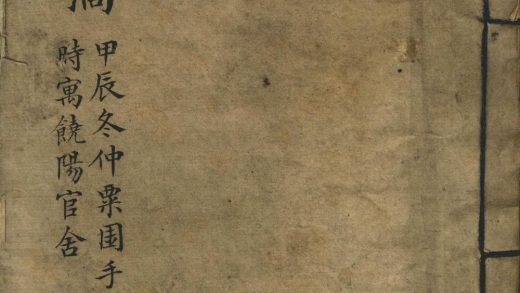 甲辰冬仲粟手
時寓饒陽官舍